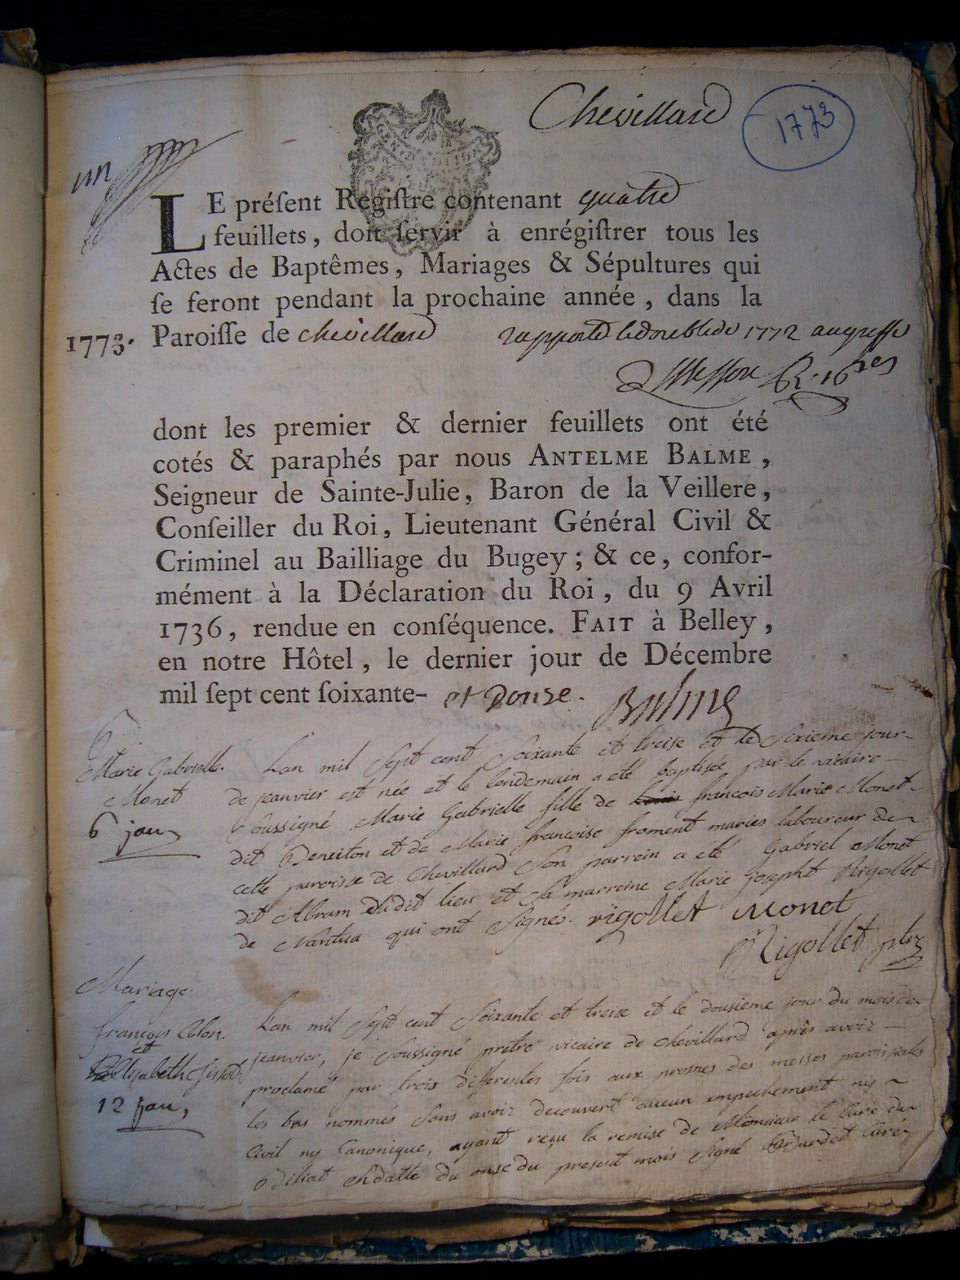 Chevillard
1773
un
LE préſent Regiſtre contenant quatre
feuillets, doit ſervir à enrégiſtrer tous les
Actes de Baptêmes, Mariages & Sépultures qui
ſe feront pendant la prochaine année, dans la
1773. Paroiſſe de chevillard rapporté le double de 1772 au greffe
dont les premier & dernier feuillets ont été
cotés & paraphés par nous ANTELME BALME,
Seigneur de Sainte-Julie, Baron de la Veillere,
Conſeiller du Roi, Lieutenant Général Civil &
Criminel au Bailliage du Bugey; & ce, confor-
mément à la Déclaration du Roi, du 9 Avril
1736, rendue en conſéquence. FAIT à Belley,
en notre Hôtel, le dernier jour de Décembre
mil ſept cent ſoixante- et Douse. Balme
Marie Gabrielle Lan mil Sept cent Soixante et treise et le Sixieme jour
Monet de janvier est née et le lendemain a été baptisée par le vicaire
6 jan Soussigné Marie Gabrielle fille de francois Marie Monet
dit et de Marie francoise froment mariés laboureur de
cette paroisse de Chevillard Son parrein a été Gabriel Monet
dit Abram dudit lieu et Sa marreine Marie Josepht Rigollet
de Nantua qui ont Signes. rigollet Monet
Rigollet ptre
Mariage
françois Colon Lan mil Sept cent Soixante et treise et le dousieme jour du mois de
et janvier, je Soussigné prêtre vicaire de Chevillard après avoir
Elisabeth proclamé par trois differentes fois aux prosnes des messes paroissiales
12 jan, les bas nommés Sans avoir decouvert aucun empechement ny
Civil ny Canonique, ayant reçu la remise de Monsieur le Curé du
en datte du onse du present mois Signé Curé